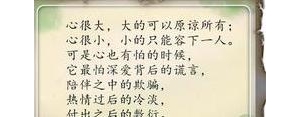 心很大，大的可以原谅所有；
心很小，小的只能容下一人。
可是心也有怕的时候，
它最怕深爱背后的谎言，
陪伴之中的欺骗，
热情过后的冷淡，
付出之后的敷衍。